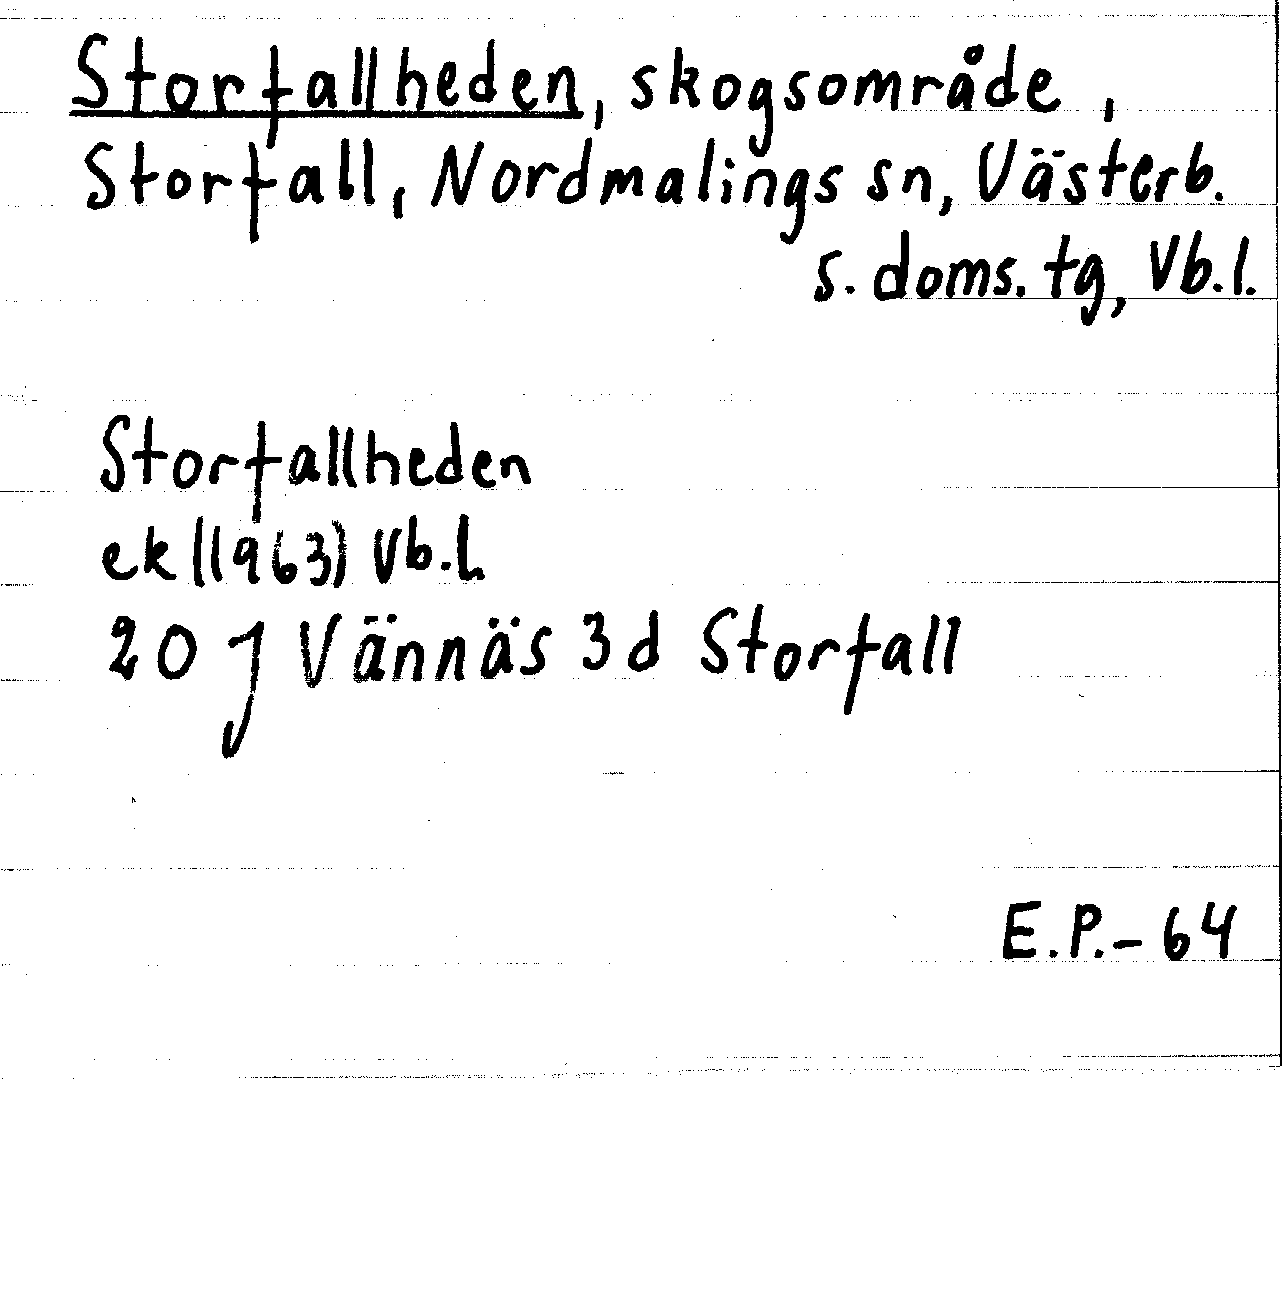 Storfallheden, skogsområde,
Storfall, Nordmalings sn, Västerb.
s. doms. tg, Vb.l.
Storfallheden
ek (1963) Vb.l.
20 J Vännäs 3d Storfall
E.P.-64